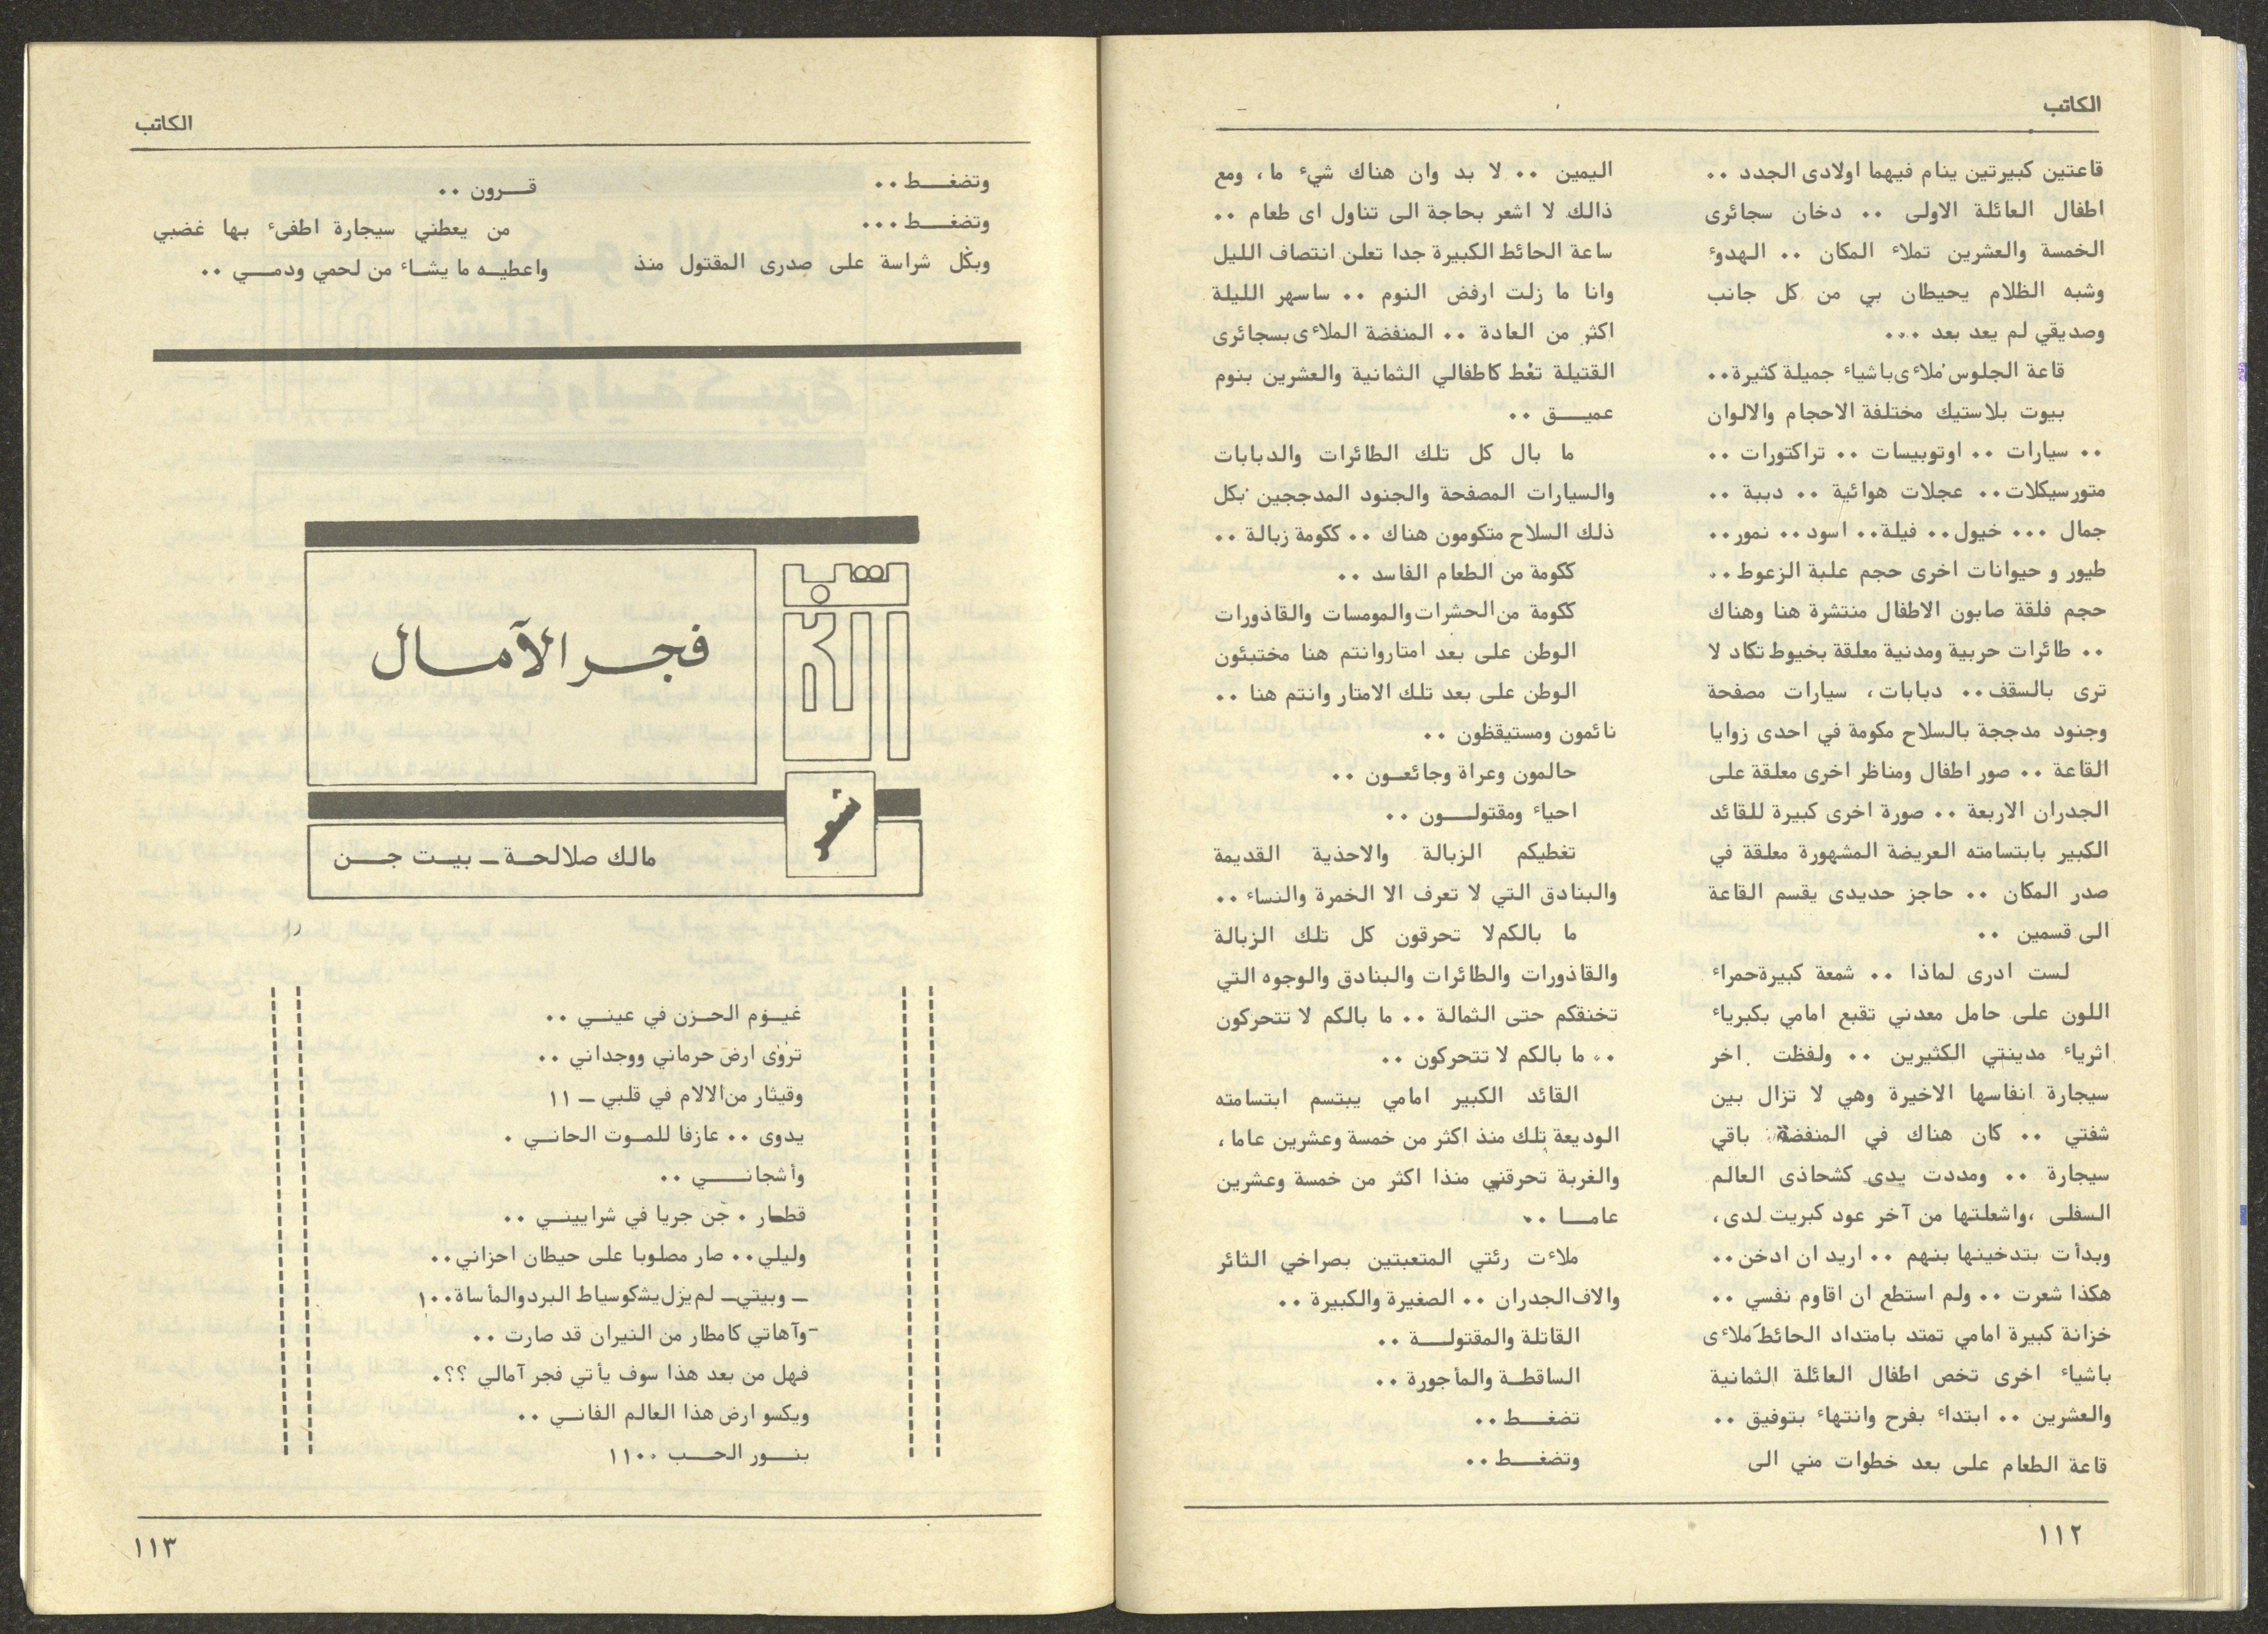 الكاتب
قاعتين كبيرتين ينام فيهما اولادى الجدد ..
اطفال العائلة الاولى .. دخان سجائرى
الخمسة والعشرين تملاء المكان .. الهدوء
وشبه الظلام يحيطان بي من كل جانب
وصديقي لم يعد بعد ...
قاعة الجلوس ملاءى باشياء جميلة كثيرة..
بيوت بلاستيك مختلفة الاحجام والالوان
.. سيارات .. اوتوبيسات .. تراكتورات ..
متورسيكلات.. عجلات هوائية .. دببة ..
جمال ... خيول.. فيلة.. اسود.. نمور..
طيور و حيوانات اخرى حجم علبة الزعوط..
حجم فلقة صابون الاطفال منتشرة هنا وهناك
.. طائرات حربية ومدنية معلقة بخيوط تكاد لا
ترى بالسقف.. دبابات، سيارات مصفحة
وجنود مدججة بالسلاح مكومة في احدى زوايا
القاعة .. صور اطفال ومناظر اخرى معلقة على
الجدران الاربعة .. صورة اخرى كبيرة للقائد
الكبير بابتسامته العريضة المشهورة معلقة في
صدر المكان .. حاجز حديدى يقسم القاعة
الى قسمين ..
لست ادرى لماذا .. شمعة كبيرة حمراء
اللون على حامل معدني تقبع امامي بكبرياء
اثرياء مدينتي الكثيرين .. ولفظت اخر
سيجارة انفاسها الاخيرة وهي لا تزال بين
شفتي .. كان هناك في المنفضة باقي
سيجارة .. ومددت يدى كشحاذى العالم
السفلى ،واشعلتها من آخر عود كبريت لدى،
وبدأت بتدخينها بنهم .. اريد ان ادخن..
هكذا شعرت .. ولم استطع ان اقاوم نفسي ..
خزانة كبيرة امامي تمتد بامتداد الحائط ملاءى
باشياء اخرى تخص اطفال العائلة الثمانية
والعشرين .. ابتداء بفرح وانتهاء بتوفيق ..
قاعة الطعام على بعد خطوات مني الى
اليمين .. لا بد وان هناك شيء ما، ومع
ذالك لا اشعر بحاجة الى تناول اى طعام ..
ساعة الحائط الكبيرة جدا تعلن انتصاف الليل
وانا ما زلت ارفض النوم .. ساسهر الليلة
اكثر من العادة .. المنفضة الملاءى بسجائرى
القتيلة تغط كاطفالي الثمانية والعشرين بنوم
عميـــق ..
ما بال كل تلك الطائرات والدبابات
والسيارات المصفحة والجنود المدججين بكل
ذلك السلاح متكومون هناك .. ككومة زبالة ..
ككومة من الطعام الفاسد ..
ككومة من الحشرات والمومسات والقاذورات
الوطن على بعد امتار وانتم هنا مختبئون
الوطن على بعد تلك الامتار وانتم هنا ..
نائمون ومستيقظون ..
حالمون وعراة وجائعـون ..
احياء ومقتولــــون ..
تغطيكم الزبالة والاحذية القديمة
والبنادق التي لا تعرف الا الخمرة والنساء ..
ما بالكم لا تحرقون كل تلك الزبالة
والقاذورات والطائرات والبنادق والوجوه التي
تخنقكم حتى الثمالة .. ما بالكم لا تتحركون
.. ما بالكم لا تتحركون ..
القائد الكبير امامي يبتسم ابتسامته
الوديعة تلك منذ اكثر من خمسة وعشرين عاما،
والغربة تحرقني منذا اكثر من خمسة وعشرين
عامـــا ..
ملاءت رئتي المتعبتين بصراخي الثائر
والاف الجدران .. الصغيرة والكبيرة ..
القاتلة والمقتولـــة ..
الساقطـة والمأجورة ..
تضغـــط ..
وتضغـــط ..
١١٢
الكاتب
وتضغـــط ..
وتضغـــط ...
وبكل شراسة على صدرى المقتول منذ
قـــرون ..
من يعطني سيجارة اطفىء بها غضبي
واعطيـه ما يشاء من لحمي ودمـــي ..
فجر الآمال
شعر
مالك صلالحـة ــ بيـت جـــن
غيـوم الحـزن في عينـي ..
تروى ارض حرماني ووجداني ..
وقيثار من الالام في قلبي ــ ١١
يدوى .. عازفا للمـوت الحانـي .
وأشجانــــي ..
قطـار . جن جريا في شرايينـي ..
وليلي.. صار مصلوبا على حيطان احزاني..
ــ وبيتي ــ لم يزل يشكو سياط البرد والمأساة..١
-وآهاتي كامطار من النيران قد صارت ..
فهل من بعد هذا سوف يأتي فجر آمالي ؟؟.
ويكسو ارض هذا العالم الفانـي ..
بنـــور الحـــب ..١١
١١٣